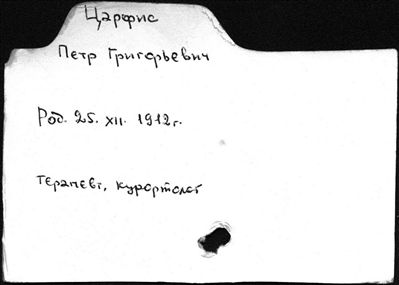 Царфис
Петр Григорьевич
Род. 25. XII. 1912 г.
терапевт, курортолог